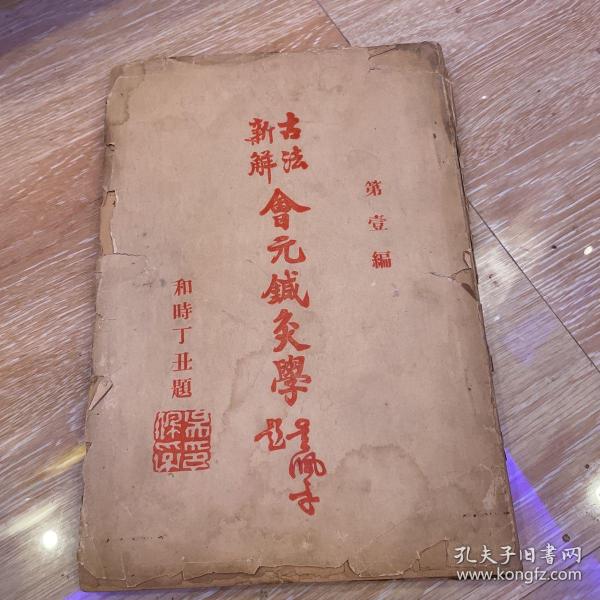 第壹編
古法
新解
會元鍼灸學
吳佩孚
題
和時丁丑題
孔夫子旧書网
www.kongfz.com